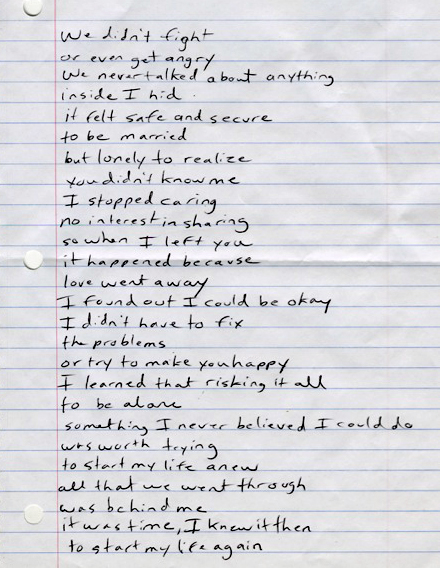 We didn't fight
or even get angry
We never talked about anything
inside I hid.
it felt safe and secure
to be married
but lonely to realize
you didn't know me
I stopped caring
no interest in sharing
so when I left you
it happened because
love went away
I found out I could be okay
I didn't have to fix
the problems
or try to make you happy
I learned that risking it all
to be alone
something I never believed I could do
was worth trying
to start my life anew
all that we went through
was behind me
it was time, I knew it then
to start my life again